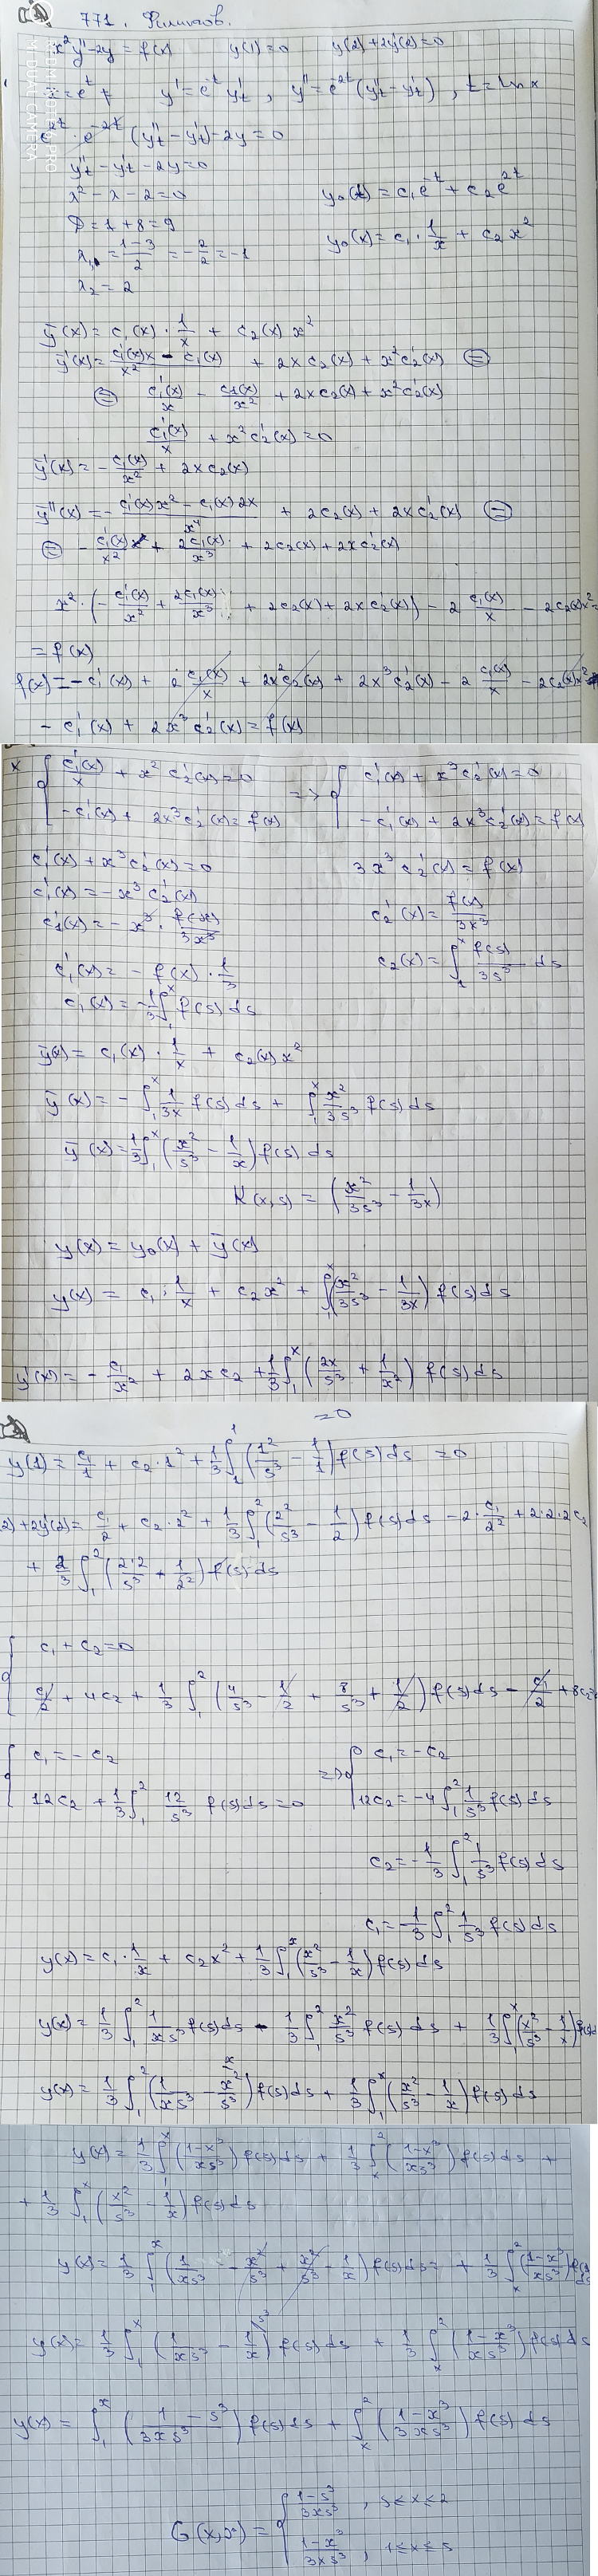 771. Филиппов.
x²y''-2y = f(x)   y(1)=0   y(2)+2y'(2)=0
x=e^t,   y'=e^{-t} y'_t,   y''=e^{-2t}(y''_t-y'_t),   t=ln x
e^{2t}·e^{-2t}(y''_t-y'_t)-2y=0
y''_t-y'_t-2y=0
λ²-λ-2=0   y₀(t)=c₁e^{-t}+c₂e^{2t}
D=1+8=9
λ₁=(1-3)/2=-2/2=-1   y₀(x)=c₁·1/x+c₂x²
λ₂=2
ȳ(x)=c₁(x)·1/x+c₂(x)x²
ȳ'(x)=(c₁'(x)x-c₁(x))/x²+2xc₂(x)+x²c₂'(x) =
= c₁'(x)/x-c₁(x)/x²+2xc₂(x)+x²c₂'(x)
c₁'(x)/x+x²c₂'(x)=0
ȳ'(x)=-c₁(x)/x²+2xc₂(x)
ȳ''(x)=-(c₁'(x)x²-c₁(x)2x)/x⁴+2c₂(x)+2xc₂'(x) =
= -c₁'(x)/x²+2c₁(x)/x³+2c₂(x)+2xc₂'(x)
x²·(-c₁'(x)/x²+2c₁(x)/x³+2c₂(x)+2xc₂'(x))-2c₁(x)/x-2c₂(x)x²=
=f(x)
f(x)=-c₁'(x)+2c₁(x)/x+2x²c₂(x)+2x³c₂'(x)-2c₁(x)/x-2c₂(x)x²
-c₁'(x)+2x³c₂'(x)=f(x)
x { c₁'(x)/x+x²c₂'(x)=0   =>   { c₁'(x)+x³c₂'(x)=0
-c₁'(x)+2x³c₂'(x)=f(x)   -c₁'(x)+2x³c₂'(x)=f(x)
c₁'(x)+x³c₂'(x)=0   3x³c₂'(x)=f(x)
c₁'(x)=-x³c₂'(x)
c₁'(x)=-x³·f(x)/3x³   c₂'(x)=f(x)/3x³
c₁'(x)=-f(x)·1/3   c₂(x)=∫₁^x f(s)/3s³ ds
c₁(x)=-1/3∫₁^x f(s)ds
ȳ(x)=c₁(x)·1/x+c₂(x)x²
ȳ(x)=-∫₁^x 1/3x f(s)ds+∫₁^x x²/3s³ f(s)ds
ȳ(x)=1/3∫₁^x(x²/s³-1/x)f(s)ds
K(x,s)=(x²/3s³-1/3x)
y(x)=y₀(x)+ȳ(x)
y(x)=c₁·1/x+c₂x²+∫₁^x(x²/3s³-1/3x)f(s)ds
y'(x)=-c₁/x²+2xc₂+1/3∫₁^x(2x/s³+1/x²)f(s)ds
=0
y(1)=c₁/1+c₂·1²+1/3∫₁^1(1²/s³-1/1)f(s)ds=0
2)+2y'(2)=c₁/2+c₂·2²+1/3∫₁²(2²/s³-1/2)f(s)ds-2·c₁/2²+2·2·2c₂
+2/3∫₁²(2·2/s³+1/2²)f(s)ds
{ c₁+c₂=0
c₁/2+4c₂+1/3∫₁²(4/s³-1/2+8/s³+1/2)f(s)ds-c₁/2+8c₂=
{ c₁=-c₂   =>   { c₁=-c₂
12c₂+1/3∫₁² 12/s³ f(s)ds=0   12c₂=-4∫₁² 1/s³ f(s)ds
c₂=-1/3∫₁² 1/s³ f(s)ds
c₁=-1/3∫₁² 1/s³ f(s)ds
y(x)=c₁·1/x+c₂x²+1/3∫₁^x(x²/s³-1/x)f(s)ds
y(x)=1/3∫₁² 1/xs³ f(s)ds-1/3∫₁² x²/s³ f(s)ds+1/3∫₁^x(x²/s³-1/x)f(s)ds
y(x)=1/3∫₁²(1/xs³-x²/s³)f(s)ds+1/3∫₁^x(x²/s³-1/x)f(s)ds
y(x)=1/3∫₁^x((1-x³)/xs³)f(s)ds+1/3∫ₓ²((1-x³)/xs³)f(s)ds+
+1/3∫₁^x(x²/s³-1/x)f(s)ds
y(x)=1/3∫₁^x(1/xs³-x²/s³+x²/s³-1/x)f(s)ds=+1/3∫ₓ²((1-x³)/xs³)f(s)ds
y(x)=1/3∫₁^x(1/xs³-1/x)f(s)ds+1/3∫ₓ²((1-x³)/xs³)f(s)ds
y(x)=∫₁^x((1-s³)/3xs³)f(s)ds+∫ₓ²((1-x³)/3xs³)f(s)ds
G(x,s)={ (1-s³)/3xs³, s≤x≤2
(1-x³)/3xs³, 1≤x≤s